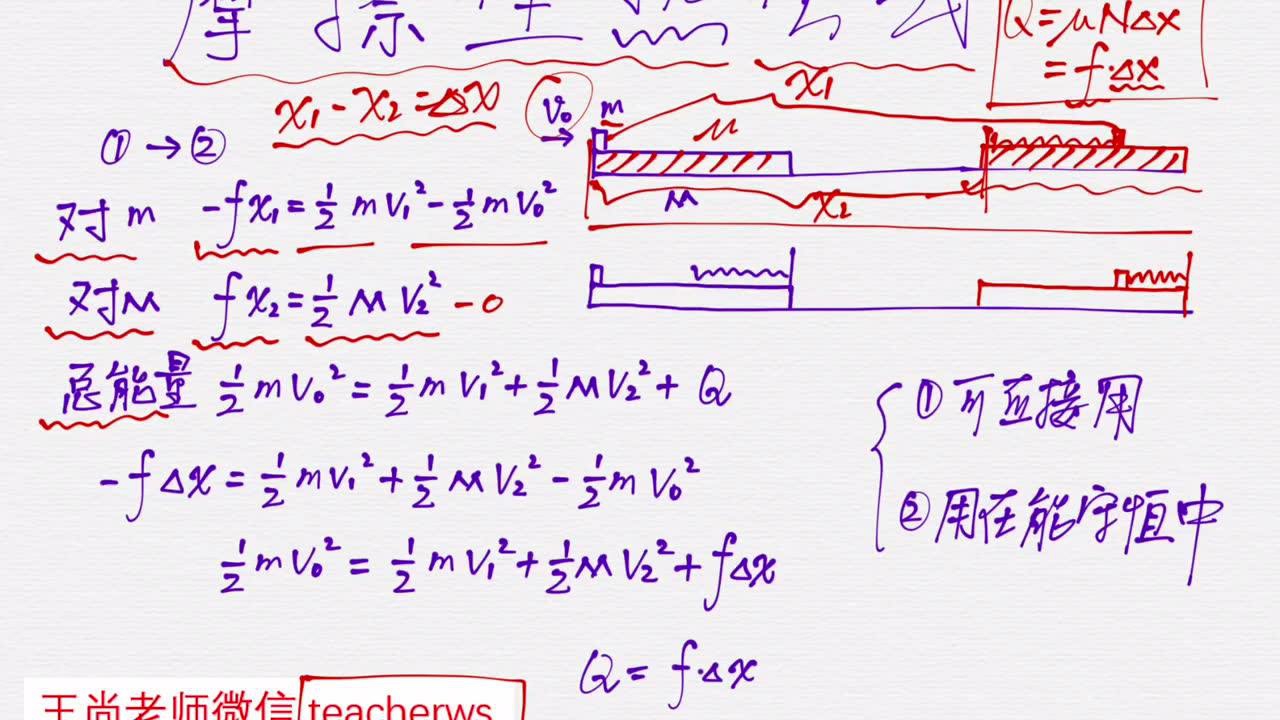 摩擦生热公式
Q=μN△x
=f·△x
x₁-x₂=△x
V₀
m
x₁
μ
M
x₂
①→②
对m -fx₁=½mV₁²-½mV₀²
对M fx₂=½MV₂²-0
总能量 ½mV₀²=½mV₁²+½MV₂²+Q
-f△x=½mV₁²+½MV₂²-½mV₀²
½mV₀²=½mV₁²+½MV₂²+f△x
Q=f·△x
①可直接用
②用在能守恒中
王尚老师微信 teacherws